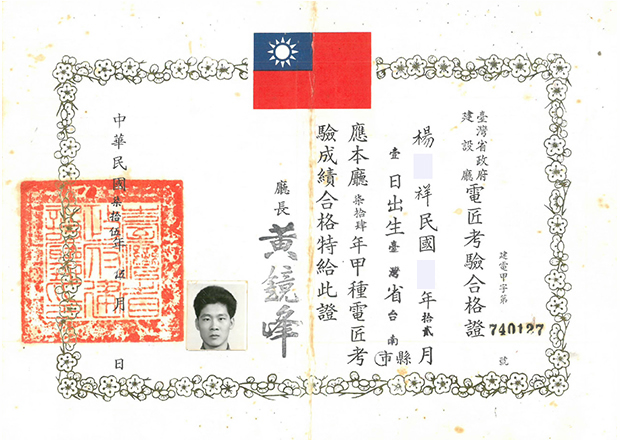 建電甲字第740127號
臺灣省政府
建設廳
電匠考驗合格證
楊 祥民國 年拾貳月
壹日出生臺灣省台南縣市
應本廳柒拾肆年甲種電匠考
驗成績合格特給此證
廳長 黃鏡峰
中華民國柒拾伍年伍月 日